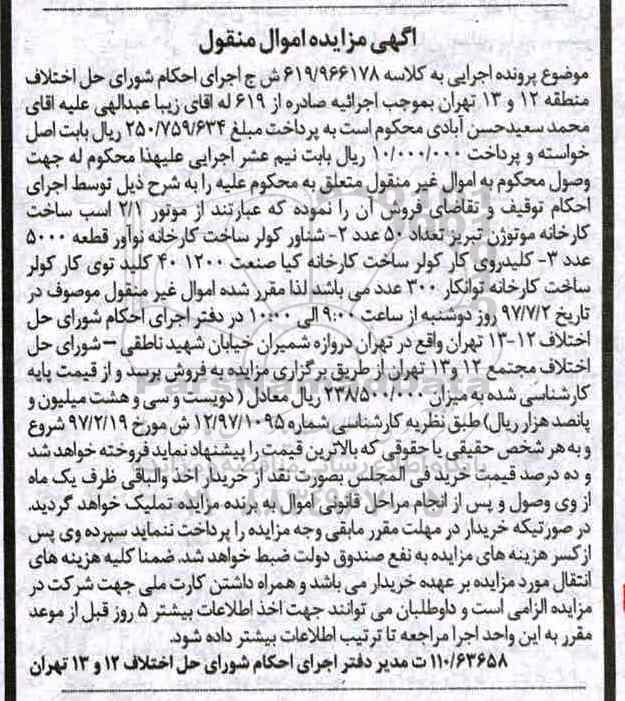 آگهی مزایده اموال منقول
موضوع پرونده اجرایی به کلاسه ۶۱۹/۹۶۶۱۷۸ ش ج اجرای احکام شورای حل اختلاف
منطقه ۱۲ و ۱۳ تهران بموجب اجرائیه صادره از ۶۱۹ له اقای زیبا عبدالهی علیه اقای
محمد سعیدحسن آبادی محکوم است به پرداخت مبلغ ۲۵۰/۷۵۹/۶۳۴ ریال بابت اصل
خواسته و پرداخت ۱۰/۰۰۰/۰۰۰ ریال بابت نیم عشر اجرایی علیهذا محکوم له جهت
وصول محکوم به اموال غیر منقول متعلق به محکوم علیه را به شرح ذیل توسط اجرای
احکام توقیف و تقاضای فروش آن را نموده که عبارتند از موتور ۲/۱ اسب ساخت
کارخانه موتوژن تبریز تعداد ۵۰ عدد ۲- شناور کولر ساخت کارخانه نوآور قطعه ۵۰۰۰
عدد ۳- کلیدروی کار کولر ساخت کارخانه کیا صنعت ۱۲۰۰ ۴۰ کلید توی کار کولر
ساخت کارخانه توانکار ۳۰۰ عدد می باشد لذا مقرر شده اموال غیر منقول موصوف در
تاریخ ۹۷/۷/۲ روز دوشنبه از ساعت ۹:۰۰ الی ۱۰:۰۰ در دفتر اجرای احکام شورای حل
اختلاف ۱۲-۱۳ تهران واقع در تهران دروازه شمیران خیابان شهید ناطقی – شورای حل
اختلاف مجتمع ۱۲ و۱۳ تهران از طریق برگزاری مزایده به فروش برسد و از قیمت پایه
کارشناسی شده به میزان ۲۳۸/۵۰۰/۰۰۰ ریال معادل ( دویست و سی و هشت میلیون و
پانصد هزار ریال) طبق نظریه کارشناسی شماره ۱۲/۹۷/۱۰۹۵ ش مورخ ۹۷/۲/۱۹ شروع
و به هر شخص حقیقی یا حقوقی که بالاترین قیمت را پیشنهاد نماید فروخته خواهد شد
و ده درصد قیمت خرید فی المجلس بصورت نقد از خریدار اخذ والباقی ظرف یک ماه
از وی وصول و پس از انجام مراحل قانونی اموال به برنده مزایده تملیک خواهد گردید.
در صورتیکه خریدار در مهلت مقرر مابقی وجه مزایده را پرداخت ننماید سپرده وی پس
از کسر هزینه های مزایده به نفع صندوق دولت ضبط خواهد شد. ضمنا کلیه هزینه های
انتقال مورد مزایده بر عهده خریدار می باشد و همراه داشتن کارت ملی جهت شرکت در
مزایده الزامی است و داوطلبان می توانند جهت اخذ اطلاعات بیشتر ۵ روز قبل از موعد
مقرر به این واحد اجرا مراجعه تا ترتیب اطلاعات بیشتر داده شود.
۱۱۰/۶۳۶۵۸ ت مدیر دفتر اجرای احکام شورای حل اختلاف ۱۲ و ۱۳ تهران
ParsNamadData